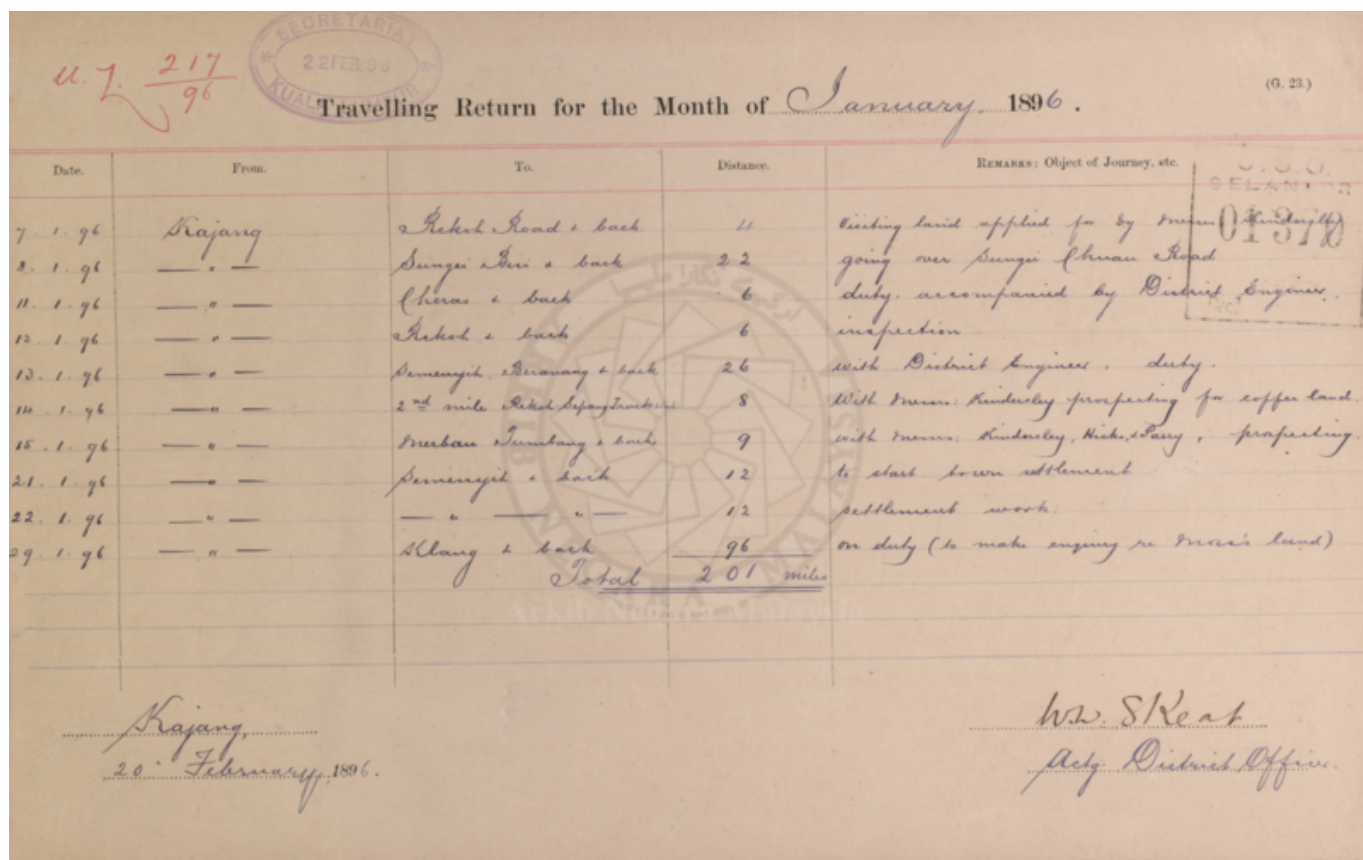 SECRETARIAT
22 FEB. 96
KUALA LUMPUR
U.L. 217/96
(G. 23.)
Travelling Return for the Month of January 1896.
Date. From. To. Distance. REMARKS: Object of Journey, etc.
SELANGOR
7. 1. 96 Kajang Rekoh Road & back 4 Visiting land applied for by Messrs Kindersley
8. 1. 96 — " — Sungei Besi & back 22 going over Sungei Chuau Road
11. 1. 96 — " — Cheras & back 6 duty. accompanied by District Engineer.
12. 1. 96 — " — Rekoh & back 6 inspection
13. 1. 96 — " — Semenyih, Beranang & back 26 with District Engineer, duty.
14. 1. 96 — " — 2nd mile Rekoh Sepang Trace & back 8 With Messrs: Kindersley prospecting for coffee land.
15. 1. 96 — " — Merbau Tumbang & back 9 with Messrs: Kindersley, Hicks, & Parry, prospecting.
21. 1. 96 — " — Semenyih & back 12 to start town settlement
22. 1. 96 — " — — " — " — 12 settlement work.
29. 1. 96 — " — Klang & back 96 on duty (to make enquiry re land)
Total 201 miles
Arkib Negara Malaysia
Kajang,
20 February, 1896.
W.W. Skeat
Actg. District Officer.